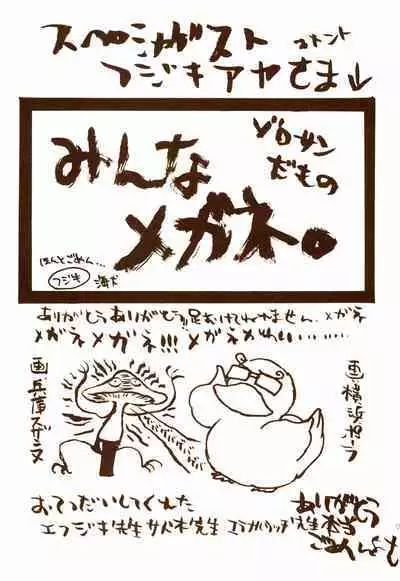 スペシャルゲスト コメント
フジキアヤさま↓
みんな
メガネ。
ゾロサン
だもの
ほんとごめん…
フジキ
ありがとうありがとう!!足あけてねれません。メガネ
メガネメガネ!!! メガネがねぃ‥‥‥‥
画・兵庫スザンヌ
画・横浜ポーラ
おてつだいしてくれた
エフジキ先生 サイ木先生
先生本当
ありがとう
ごめんよも